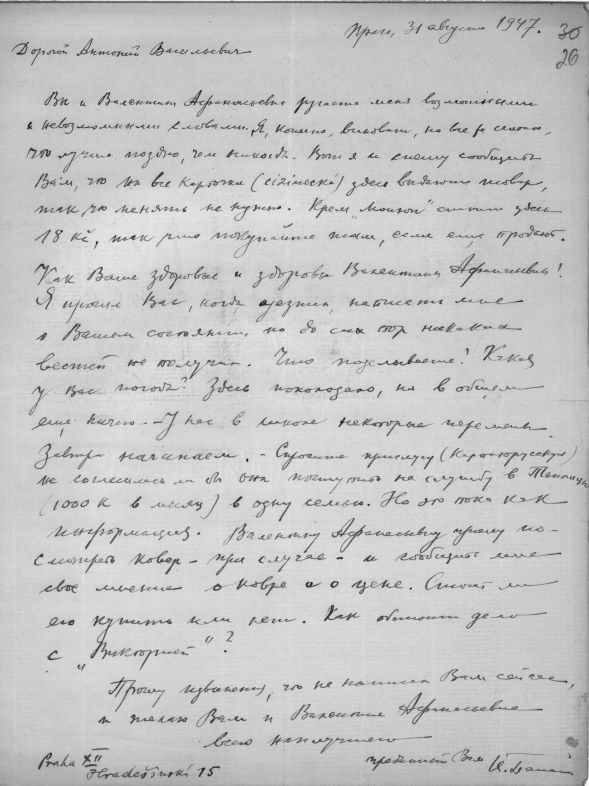 Прага, 31 августа 1947.
30
26
Дорогой Антоний Васильевич
Вы и Валентина Афанасьевна ругаете меня возможными
и невозможными словами. Я, конечно, виноват, но все же
что лучше поздно, чем никогда. Вот я и спешу сообщить
Вам, что на все карточки (cizinecké) здесь выдают товар,
так что менять не нужно. Крем "Моисон" стоит здесь
18 Kč, так что покупайте там, если еще продают.
Как Ваше здоровье и здоровье Валентины Афанасьевны?
Я просил Вас, когда уезжал, написать мне
о Вашем состоянии но до сих пор никаких
вестей не получил. Что поделываете? Какая
у Вас погода? Здесь похолодало, но в общем
еще ничего. - У нас в школе некоторые перемены.
Завтра начинаем. - Спросите прислугу (Карпаторусскую)
не согласилась ли бы она поступить на службу в
(1000 K в месяц) в одну семью. Но это пока как
информация. Валентину Афанасьевну прошу по-
смотреть ковер - при случае - и сообщить мне
свое мнение о ковре и о цене. Стоит ли
его купить или нет. Как обстоит дело
с "Викторией"?
Прошу извинения, что не написал Вам сейчас,
и желаю Вам и Валентине Афанасьевне
всего наилучшего
преданный Вам
Praha XII
Hradešínská 15